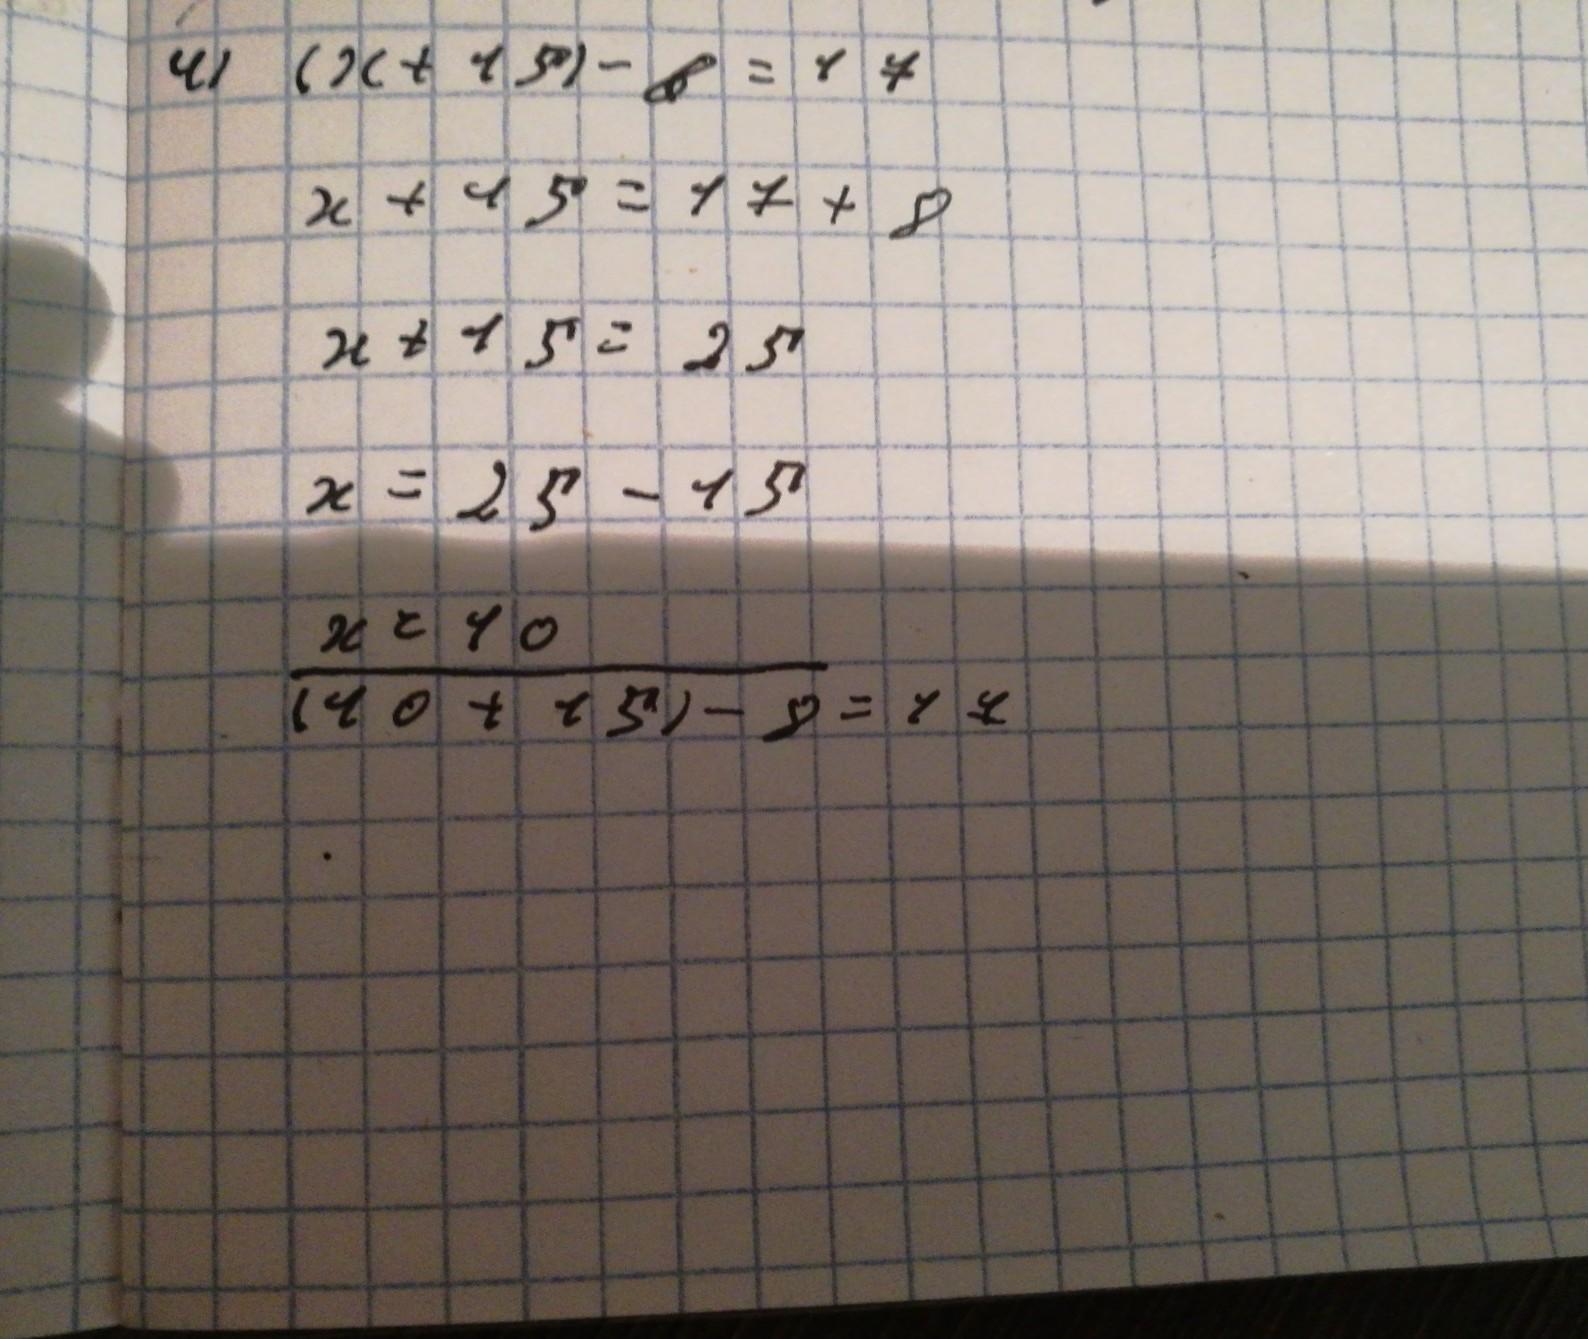 4) (x + 15) - 8 = 17
x + 15 = 17 + 8
x + 15 = 25
x = 25 - 15
x = 10
(10 + 15) - 8 = 17